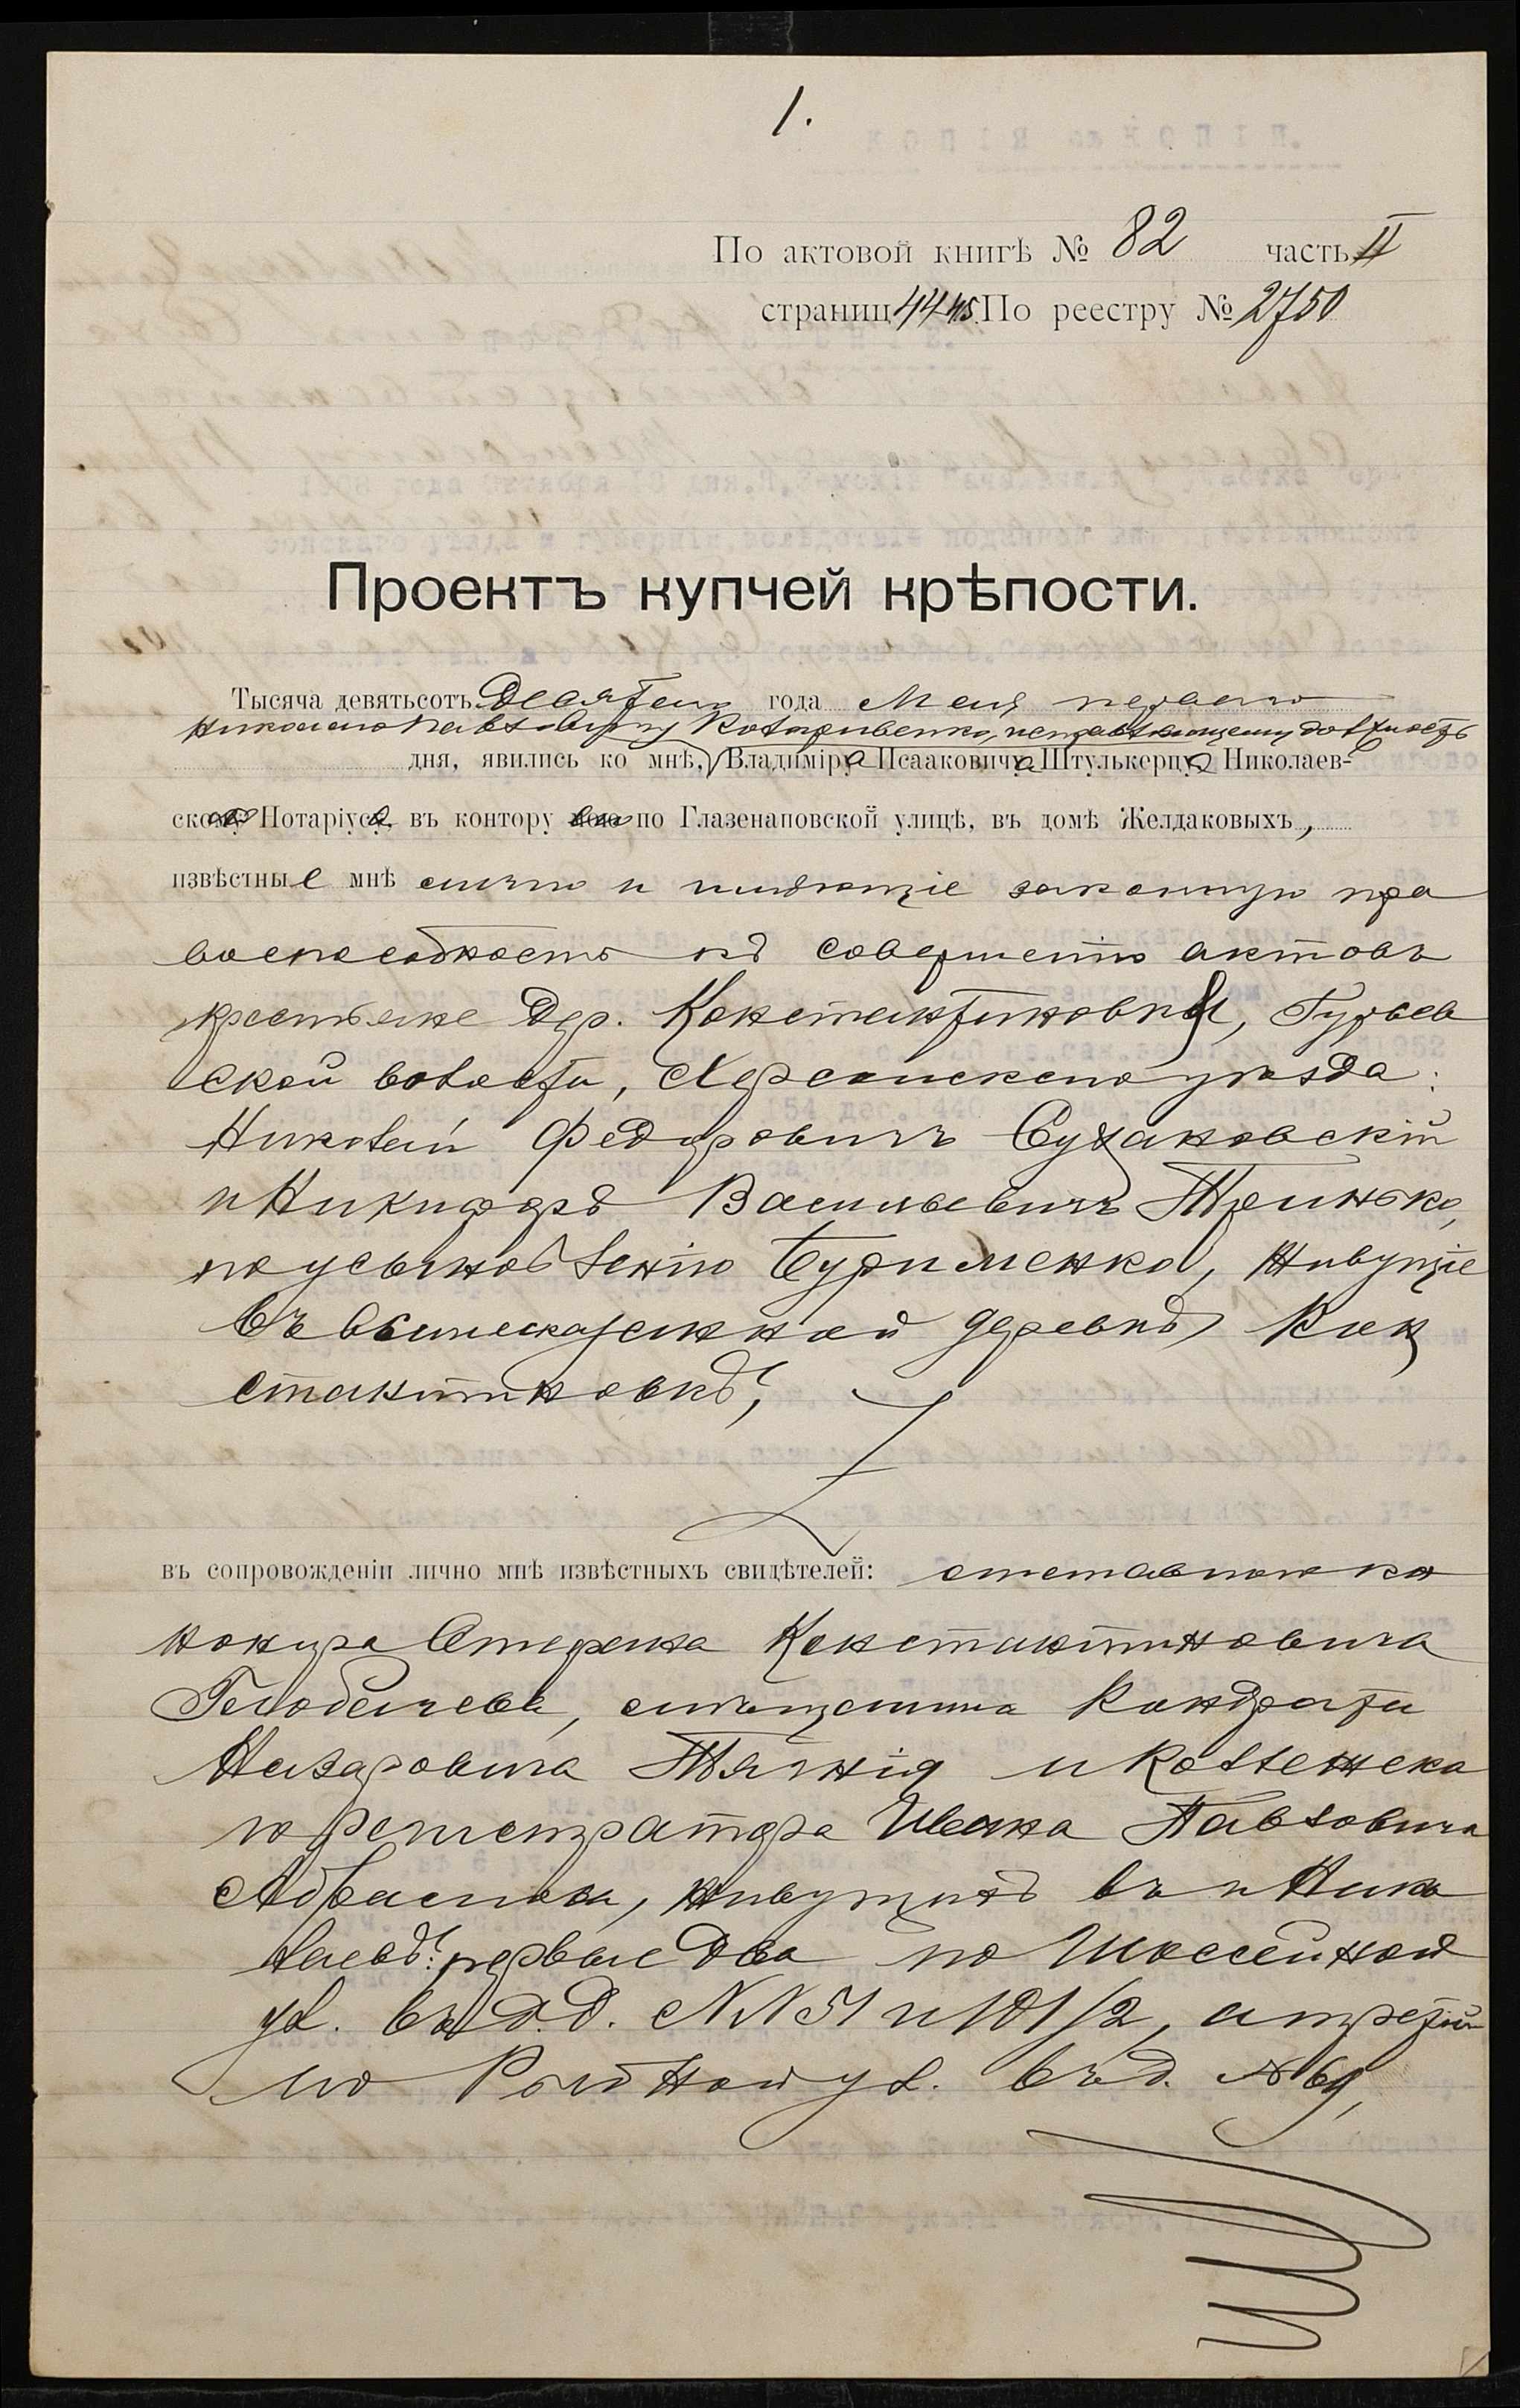 1.
По актовой книгѣ № 82 часть II
страниц 44 45. По реестру № 2750
Проектъ купчей крѣпости.
Тысяча девятьсотъ десятаго года Мая перваго
Николаю Павловичу исправляющему должность
дня, явились ко мнѣ, Владиміра Исааковича Штулькерца Николаев-
скаго Нотаріуса, въ контору его по Глазенаповской улицѣ, въ домѣ Желдаковыхъ,
извѣстные мнѣ лично и имѣющіе законную пра
воспособность къ совершенію актовъ
крестьяне дер. Константиновки, Гурьев
ской волости, Херсонскаго уѣзда:
Николай Федоровичъ Сухаковскій
и Никифоръ Васильевичъ Тринько,
по усыновленію Бурименко, живущіе
въ вышесказанной деревнѣ Кон
стантиновкѣ,
въ сопровожденіи лично мнѣ извѣстныхъ свидѣтелей: отставного ка
нонира Стефана Константиновича
мѣщанина Кондрата
Назаровича и Коллежска
го регистратора Ивана Павловича
живущихъ въ г. Нико
лаевѣ: первые два по Шоссейной
ул. въ д.д. №№ 51 и 101/2, а третій
по Рыбной ул. въ д. № 69,